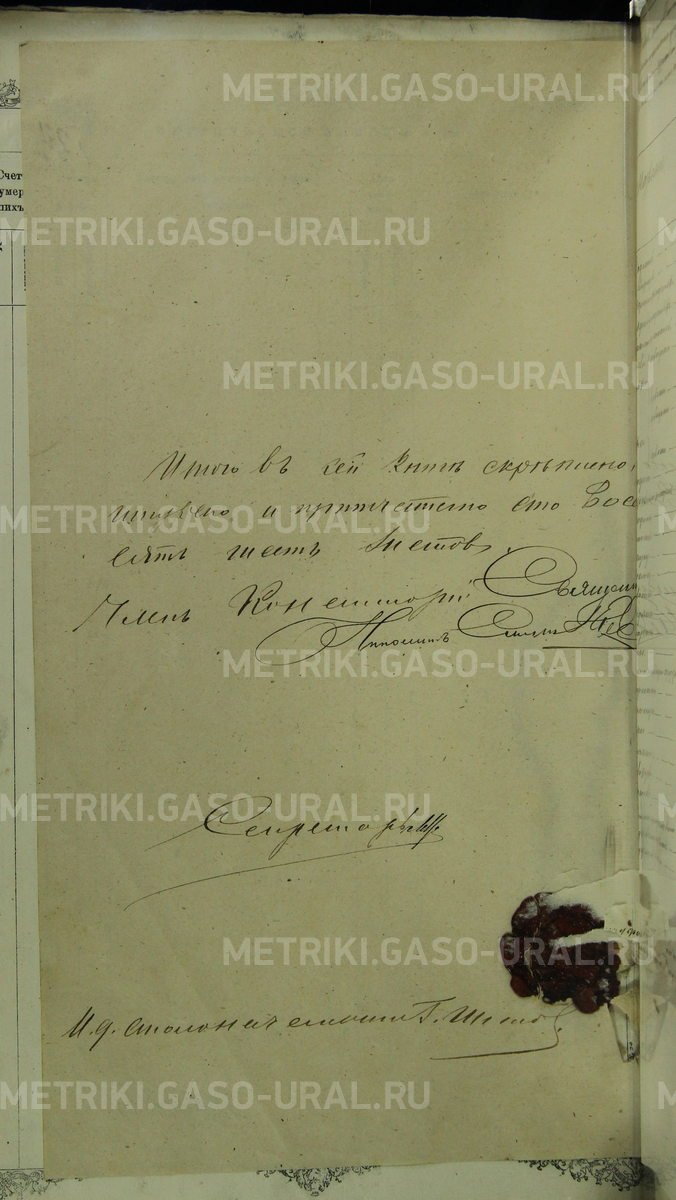 METRIKI.GASO-URAL.RU
Счет
умер
шихъ
METRIKI.GASO-URAL.RU
METRIKI.GASO-URAL.RU
Итого въ сей книгѣ скрѣплено,
и припечатано сто Вос
METRIKI.GASO-URAL.RU
сятъ шесть листовъ
Членъ Консисторіи Священ
METRIKI.GASO-URAL.RU
METRIKI.GASO-URAL.RU
Секретарь
METRIKI.GASO-URAL.RU
И. д. столоначальника
METRIKI.GASO-URAL.RU